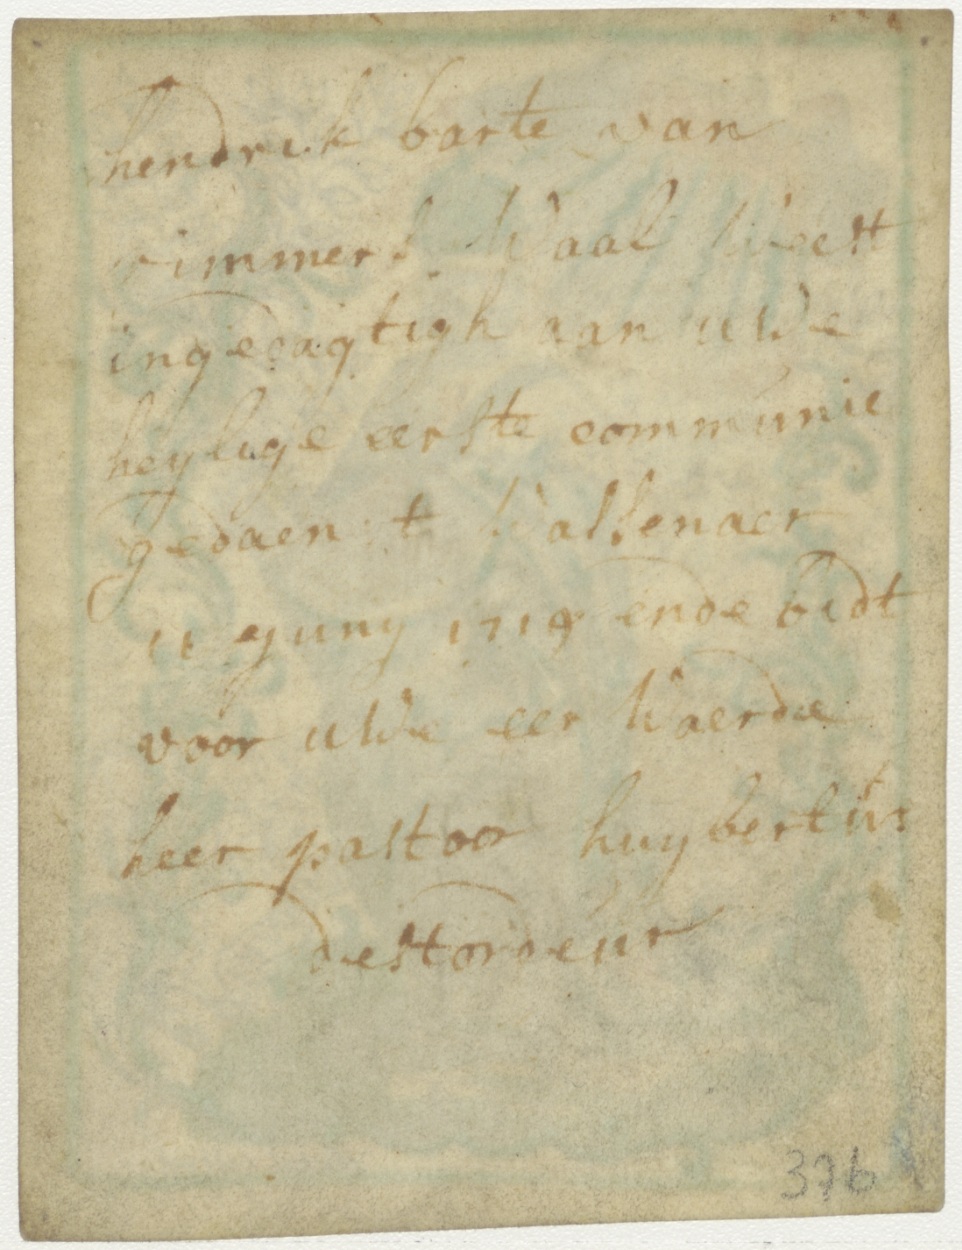 hendrik barte van
rimmers Waal Weest
ingedagtigh aan uwe
heylige eerste communie
gedaen t Wassenaer
11 juny 1719 ende bidt
voor uwe eer Waerde
heer pastoor huybertus
destordeur
37b